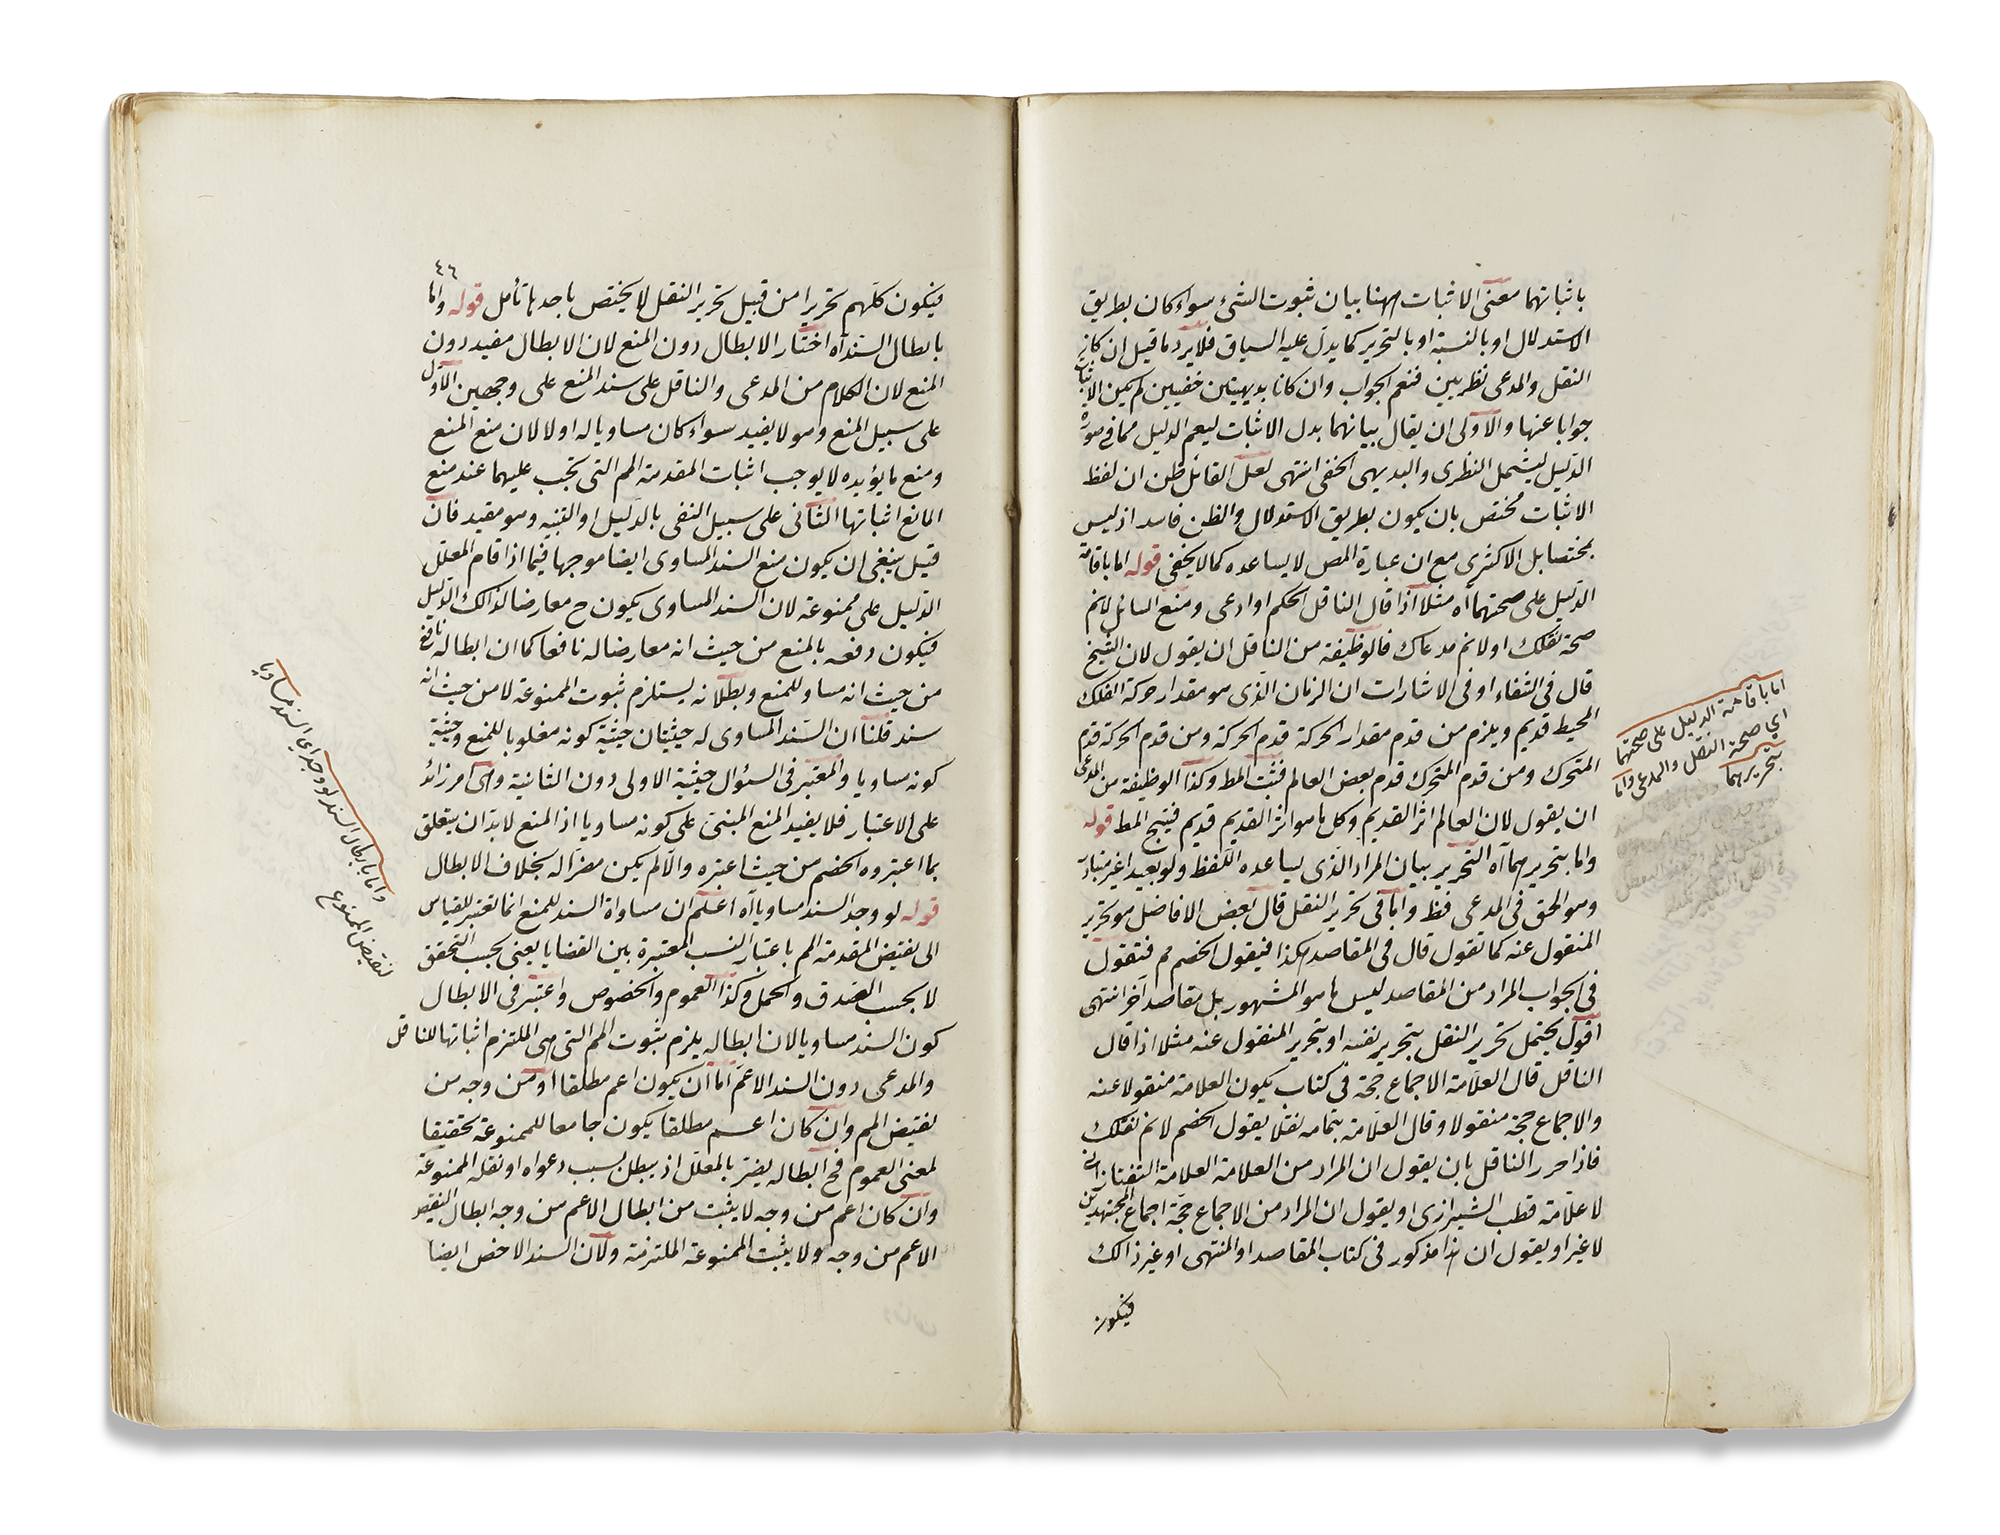 باثباتهما معنى الاثبات ههنا بيان ثبوت الشئ سواء كان بطريق
الاستدلال او بالنسبة او بالتحرير كما يدل عليه السياق فلا يرد ما قيل ان كان
النقل والمدعى نظريين فنعم الجواب وان كانا بديهيتين خفيين لم يكن الاثبات
جوابا عنها والاولى ان يقال بيانهما بدل الاثبات ليعم الدليل مما فى صورة
الدليل ليشمل النظرى والبديهى الخفى انتهى لعل القائل ظن ان لفظ
الاثبات مختص بان يكون بطريق الاستدلال والظن فاسد اذ ليس
بمختص بل الاكثرى مع ان عبارة المص لا يساعده كما لا يخفى قوله اما باقامة
الدليل على صحتهما آه مثلا اذا قال الناقل الحكم او ادعى ومنع السائل لانم
صحة نقلك او لانم مدعاك فالوظيفة من الناقل ان يقول لان الشيخ
قال فى الشفاء او فى الاشارات ان الزمان الذى هو مقدار حركة الفلك
المحيط قديم ويلزم من قدم مقدار الحركة قدم الحركة ومن قدم الحركة قدم
المتحرك ومن قدم المتحرك قدم بعض العالم فثبت المط وكذا الوظيفة من المدعى
ان يقول لان العالم اثر القديم وكل ما هو اثر القديم قديم فينتج المط قوله
واما بتحريرهما آه التحرير بيان المراد الذى يساعده اللفظ ولو بعيدا غير متبادر
وهو الحق فى المدعى فقط واما فى تحرير النقل قال بعض الافاضل هو تحرير
المنقول عنه كما تقول قال فى المقاصد هكذا فيقول الخصم مم فتقول
فى الجواب المراد من المقاصد ليس ما هو المشهور بل مقاصد آخر انتهى
اقول يحتمل تحرير النقل بتحرير نفسه او بتحرير المنقول عنه مثلا اذا قال
الناقل قال العلامة الاجماع حجة فى كتاب يكون العلامة منقولا عنه
والاجماع حجة منقولا وقال العلامة بتمامه نقلا يقول الخصم لانم نقلك
فاذا حرر الناقل بان يقول ان المراد من العلامة العلامة التفتازانى
لا علامة قطب الشيرازى او يقول ان المراد من الاجماع حجة اجماع المجتهدين
لا غير او يقول ان هذا مذكور فى كتاب المقاصد او المنتهى او غير ذالك
فيكون
اما باقامة الدليل على صحتهما
اى صحة النقل والمدعى واما
بتحريرهما
٤٦
فيكون كلهم تحريرا من قبيل تحرير النقل لا يختص باحدها تأمل قوله واما
بابطال السند آه اختار الابطال دون المنع لان الابطال مفيد دون
المنع لان الكلام من المدعى والناقل على سند المنع على وجهين الاول
على سبيل المنع وهو لا يفيد سواء كان مساويا له او لا لان منع المنع
ومنع ما يؤيده لا يوجب اثبات المقدمة المم التى تجب عليهما عند منع
المانع اثباتها الثانى على سبيل النفى بالدليل او التنبيه وهو مفيد فان
قيل ينبغى ان يكون منع السند المساوى ايضا موجها فيما اذا اقام المعلل
الدليل على ممنوعة لان السند المساوى يكون ح معارضا لذالك الدليل
فيكون دفعه بالمنع من حيث انه معارضا له نافعا كما ان ابطاله نافع
من حيث انه مساو للمنع وبطلانه يستلزم ثبوت الممنوعة لا من حيث انه
سند قلنا ان السند المساوى له حيثيتان حيثية كونه مغلوبا للمنع وحيثية
كونه مساويا والمعتبر فى السؤال حيثية الاولى دون الثانية وهى امر زائد
على الاعتبار فلا يفيد المنع المبنى على كونه مساويا اذ المنع لابد ان يتعلق
بما اعتبروه الخصم من حيث اعتبره والا لم يكن مضرا له بخلاف الابطال
قوله لو وجد السند مساويا آه اعلم ان مساواة السند للمنع انما تعتبر للقياس
الى نقيض المقدمة المم باعتبار النسب المعتبرة بين القضايا يعنى بحسب التحقق
لا بحسب الصدق والحمل وكذا العموم والخصوص واعتبر فى الابطال
كون السند مساويا لان ابطاله يلزم ثبوت المم التى هى الملتزم اثباتها للناقل
والمدعى دون السند الاعم اما ان يكون اعم مطلقا او من وجه من
نقيض المم وان كان اعم مطلقا يكون جامعا للممنوعة تحقيقا
لمعنى العموم فح ابطاله يضر بالمعلل اذ يبطل بسبب دعواه او نقله الممنوعة
وان كان اعم من وجه لا يثبت من ابطال الاعم من وجه ابطال النقيض
الاعم من وجه ولا يثبت الممنوعة الملتزمة ولان السند الاخص ايضا
واما بابطال السند لو وجد اى السند مساويا
لنقيض الممنوع